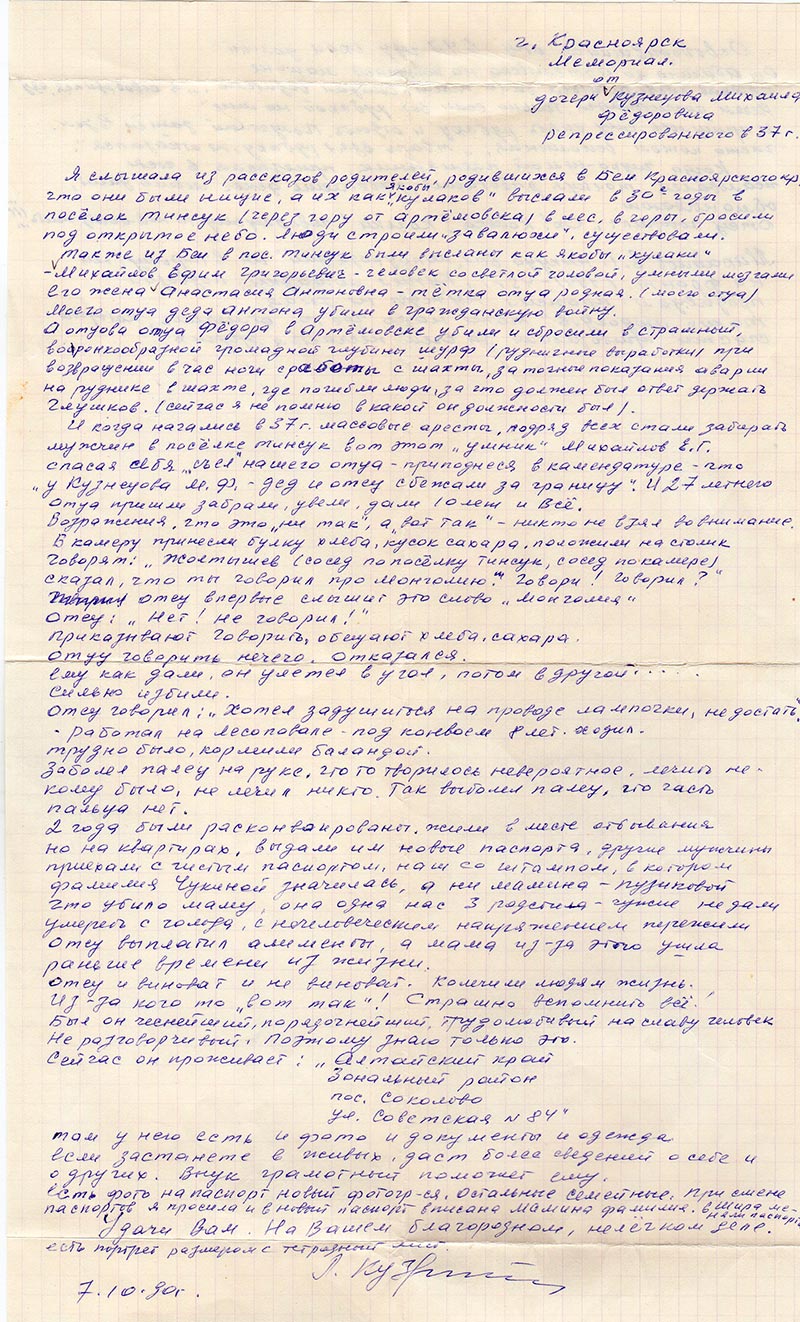 г. Красноярск
Мемориал.
от
дочери Кузнецова Михаила
Фёдоровича
репрессированного в 37 г.
Я слышала из рассказов родителей, родившихся в Беи Красноярского кр.
что они были нищие, а их как якобы „кулаков" выслали в 30е годы в
посёлок Тинсук (через гору от Артёмовска) в лес, в горы, бросили
под открытое небо. Люди строили „завалюжи", существовали.
Также из Беи в пос. Тинсук были высланы как якобы „кулаки"
- Михайлов Ефим Григорьевич - человек со светлой головой, умными мозгами
Его жена Анастасия Антоновна - тётка отца родная. (моего отца)
Моего отца деда Антона убили в гражданскую войну.
А отцова отца Фёдора в Артёмовске убили и сбросили в страшный,
воронкообразной громадной глубины шурф (рудничные выработки) при
возвращении в час ночи с работы с шахты, за точные показания аварии
на руднике в шахте, где погибли люди, за что должен был ответ держать
Глушков. (сейчас я не помню в какой он должности был).
И когда начались в 37 г. массовые аресты, подряд всех стали забирать
мужчин в посёлке Тинсук вот этот „умник" Михайлов Е.Г.
спасая себя „съел" нашего отца - приподнеся в камендатуре - что
„у Кузнецова М.Ф. - дед и отец сбежали за границу". И 27 летнего
отца пришли забрали, увели, дали 10 лет и всё.
Возражения, что это „ни так", а „вот так" - никто не взял во внимание.
В камеру принесли булку хлеба, кусок сахара, положили на столик
Говорят: „Жолтышев (сосед по посёлку Тинсук, сосед по камере)
сказал, что ты говорил про Монголию." Говори! Говорил?"
отец впервые слышит это слово „Монголия"
Отец: „Нет! Не говорил!"
Приказывают говорить, обещают хлеба, сахара.
Отцу говорить нечего. Отказался.
Ему как дали, он улетел в угол, потом в другой.....
Сильно избили.
Отец говорил: „Хотел задушиться на проводе лампочки, не достать"
- Работал на лесоповале - под конвоем 8 лет. ходил.
Трудно было, кормили баландой.
Заболел палец на руке, что то творилось невероятное, лечить не-
кому было, не лечил никто. Так выболел палец, что часть
пальца нет.
2 года были расконваированы. жили в месте отбывания
но на квартирах, выдали им новые паспорта, другие мужчины
приехали с чистым паспортом, наш со штампом, в котором
фамилия Чукиной значилась, а ни мамина - Пузиковой
что убило маму, она одна нас 3 родстила - чужие не дали
умереть с голода, с нечеловеческим напряжением пережили
Отец выплатил алименты, а мама из-за этого ушла
ранее времени из жизни.
Отец и виноват и не виноват. Колечили людям жизнь.
Из-за кого то „вот так"! Страшно вспомнить всё!
Был он честнейший, порядочнейший, трудолюбивый на славу человек
Не разговорчивый. Поэтому знаю только это.
Сейчас он проживает: „Алтайский край
Зональный район
пос. Соколово
ул. Советская N 84"
там у него есть и фото и документы и одежда
если застанете в живых, даст более сведений о себе и
о других. Внук грамотный поможет ему.
есть фото на паспорт новый фотогр-ся. Остальные семейные. При смене
паспортов я просила и в новый паспорт вписана мамина фамилия.
Удачи Вам. На Вашем благородном, нелёгком деле.
есть портрет размером с тетрадный лист.
7.10.90г.